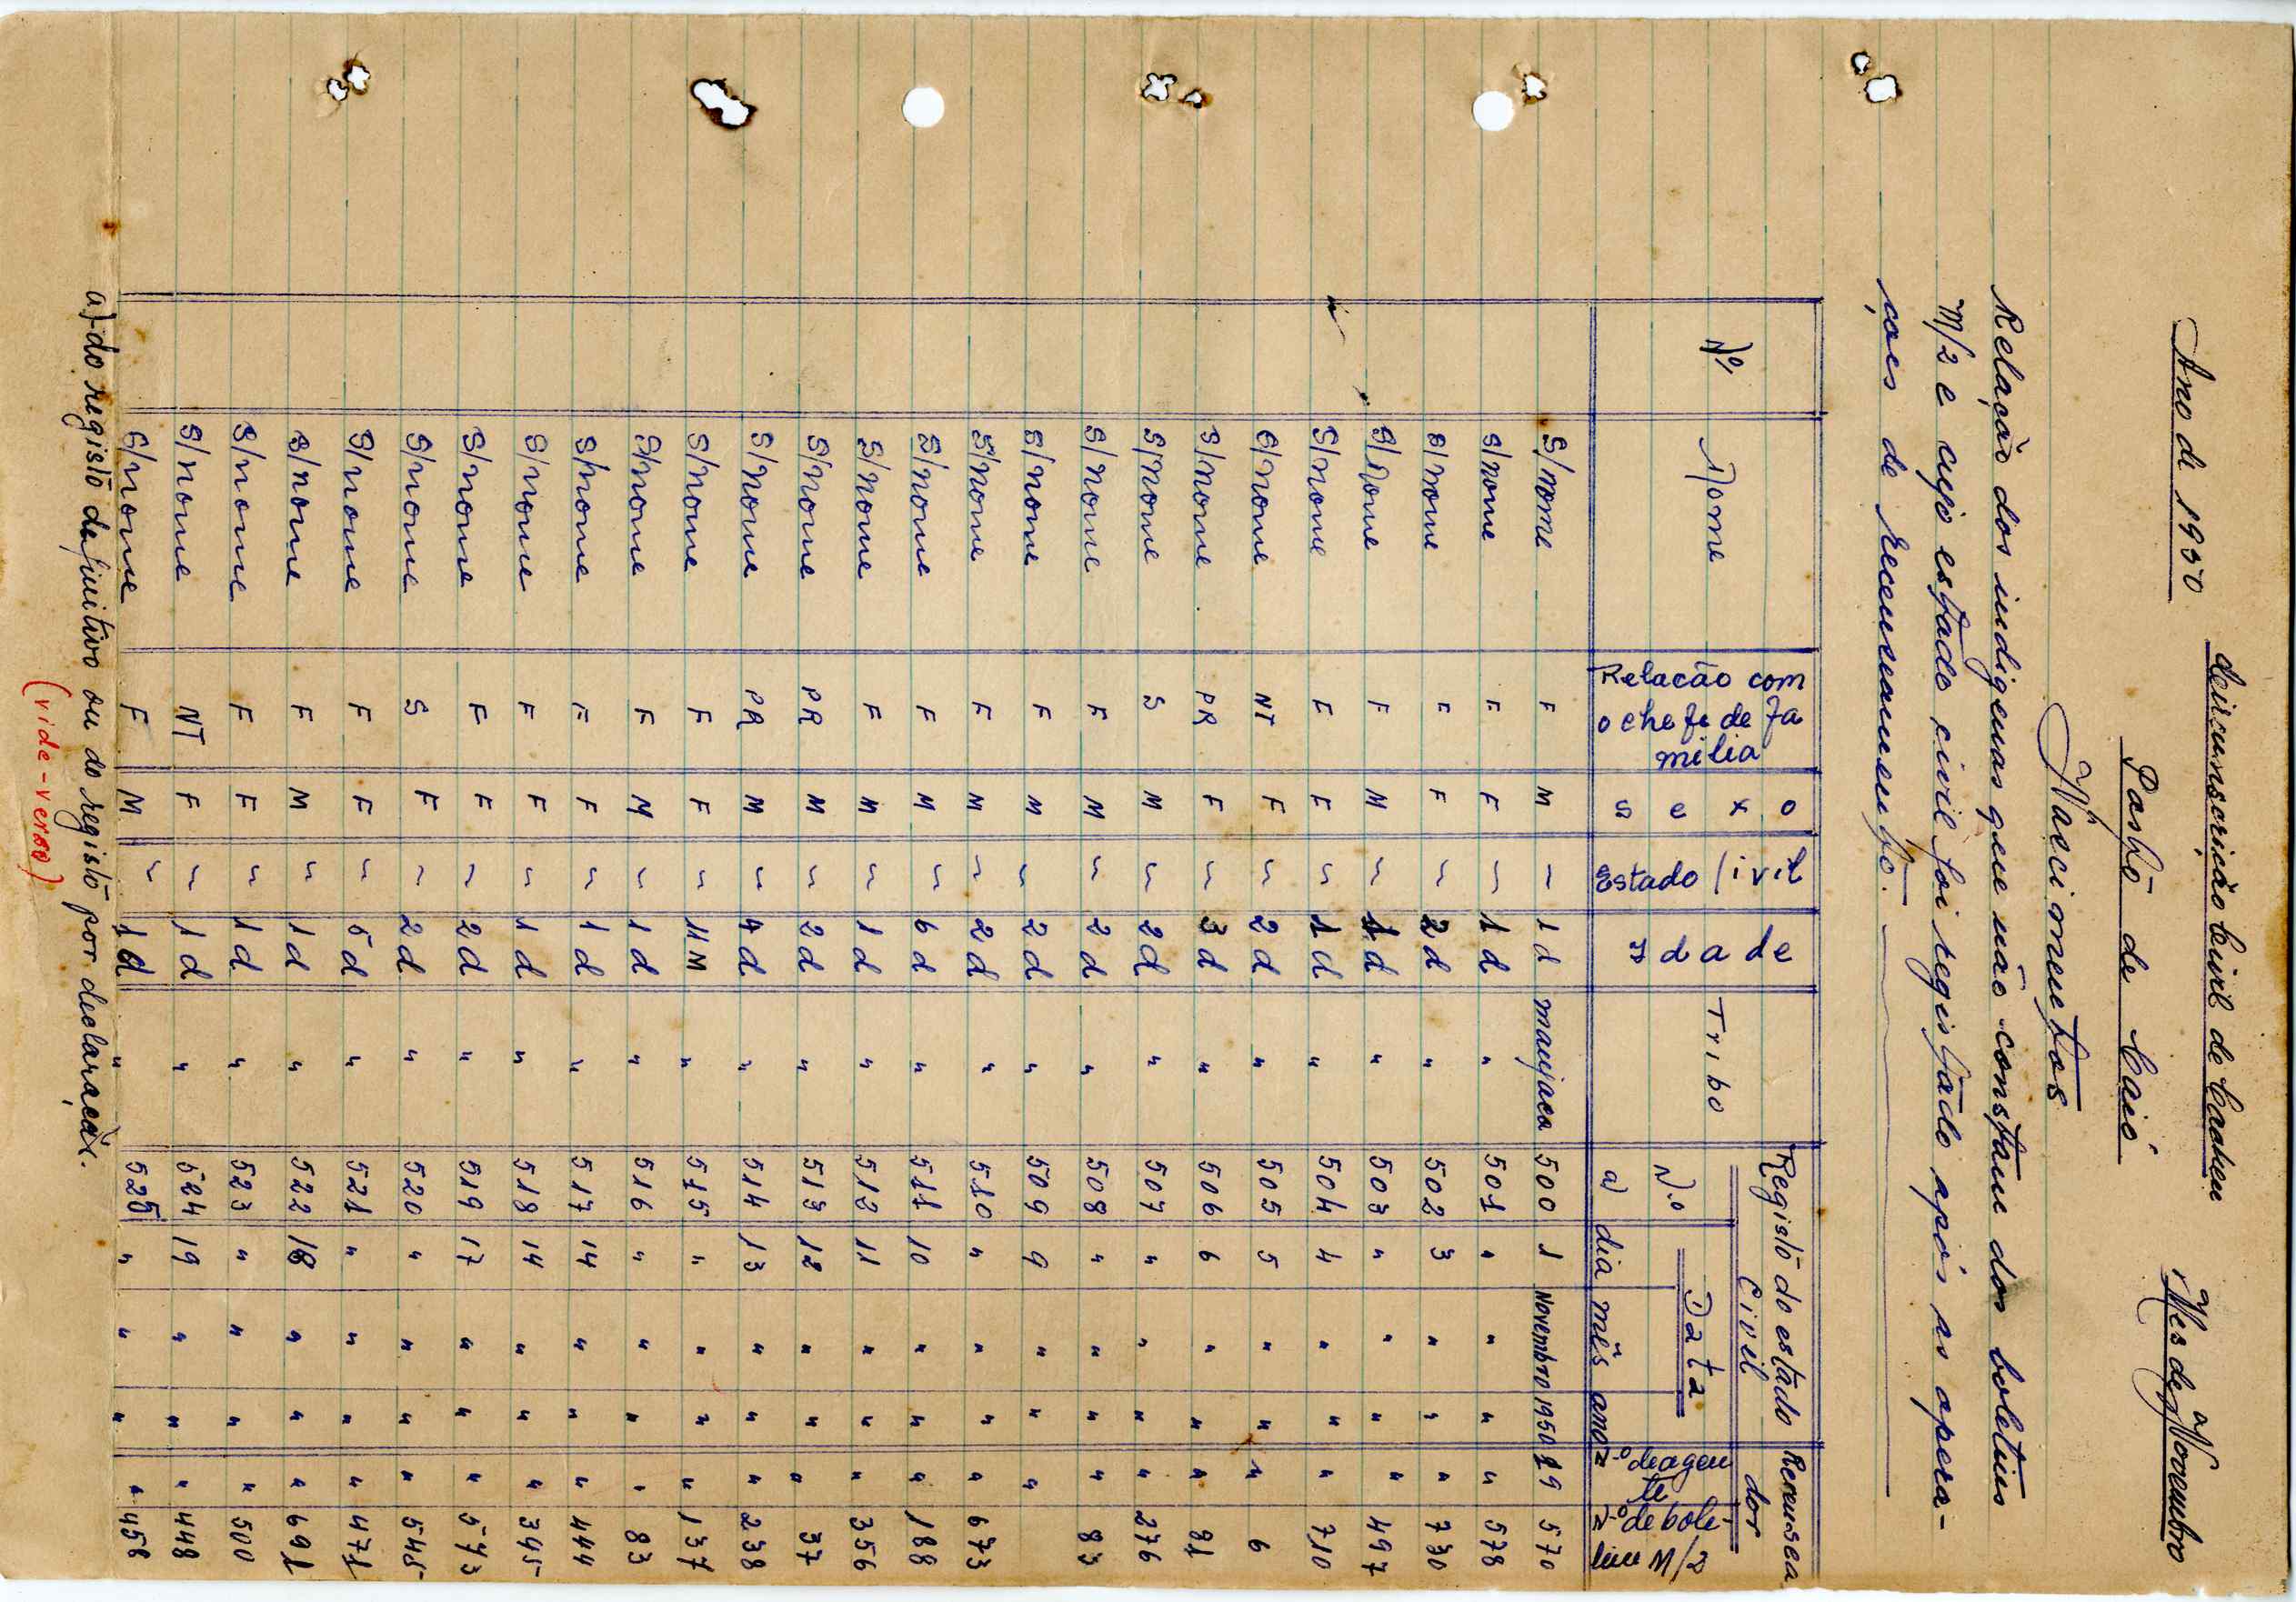 Ano de 1950
Circunscrição Civil de Cacheu
Mês de Novembro
Posto de Caió
Nascimentos
Relação dos indigenas que não constam dos boletins
M/2 e cujo estado civil foi registado após as opera-
ções de recenseamento.
Nº Nome Relacão com o chefe de fa milia sexo Estado Civil Idade Tribo Registo do estado Civil Nº a) Data dia mês ano Recensea dor Nº de agen te Nº de bole- tim M/2
S/nome F M - 1d manjaca 500 1 Novembro 1950 19 570
S/nome F F - 1d " 501 " " " " 578
S/nome F F - 2d " 502 3 " " " 730
S/Nome F M - 1d " 503 " " " " 497
S/nome F F - 1d " 504 4 " " " 710
S/nome NT F - 2d " 505 5 " " " 6
S/nome PR F - 3d " 506 6 " " " 81
S/nome S M - 2d " 507 " " " " 276
S/nome F M - 2d " 508 " " " " 83
S/nome F M - 2d " 509 9 " " "
S/nome F M - 2d " 510 " " " " 673
S/nome F M - 6d " 511 10 " " " 188
S/nome F M - 1d " 512 11 " " " 356
S/nome PR M - 2d " 513 12 " " " 37
S/nome PR M - 4d " 514 13 " " " 238
S/nome F F - 11M " 515 " " " " 137
S/nome F M - 1d " 516 " " " " 83
S/nome F F - 1d " 517 14 " " " 444
S/nome F F - 1d " 518 14 " " " 345
S/nome F F - 2d " 519 17 " " " 573
S/nome S F - 2d " 520 " " " " 545
S/nome F F - 5d " 521 " " " " 471
S/nome F M - 1d " 522 18 " " " 691
S/nome F F - 1d " 523 " " " " 500
S/nome NT F - 1d " 524 19 " " " 448
S/nome F M - 1d " 525 " " " " 458
a)-do registo definitivo ou do registo por declaração.
(vide-verso)